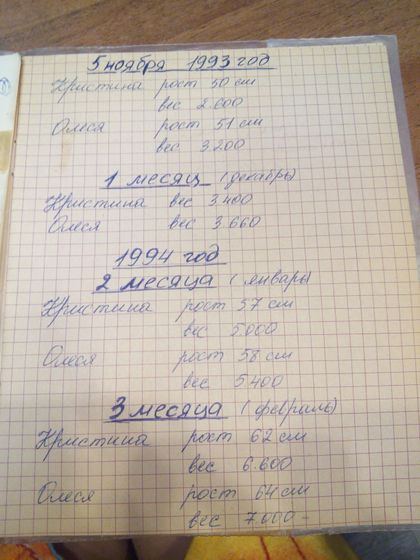 5 ноября 1993 год
Кристина рост 50 см
вес 2.600
Олеся рост 51 см
вес 3200
1 месяц (декабрь)
Кристина вес 3400
Олеся вес 3.660
1994 год
2 месяца (январь)
Кристина рост 57 см
вес 5000
Олеся рост 58 см
вес 5400
3 месяца (февраль)
Кристина рост 62 см
вес 6.600
Олеся рост 64 см
вес 7.000-